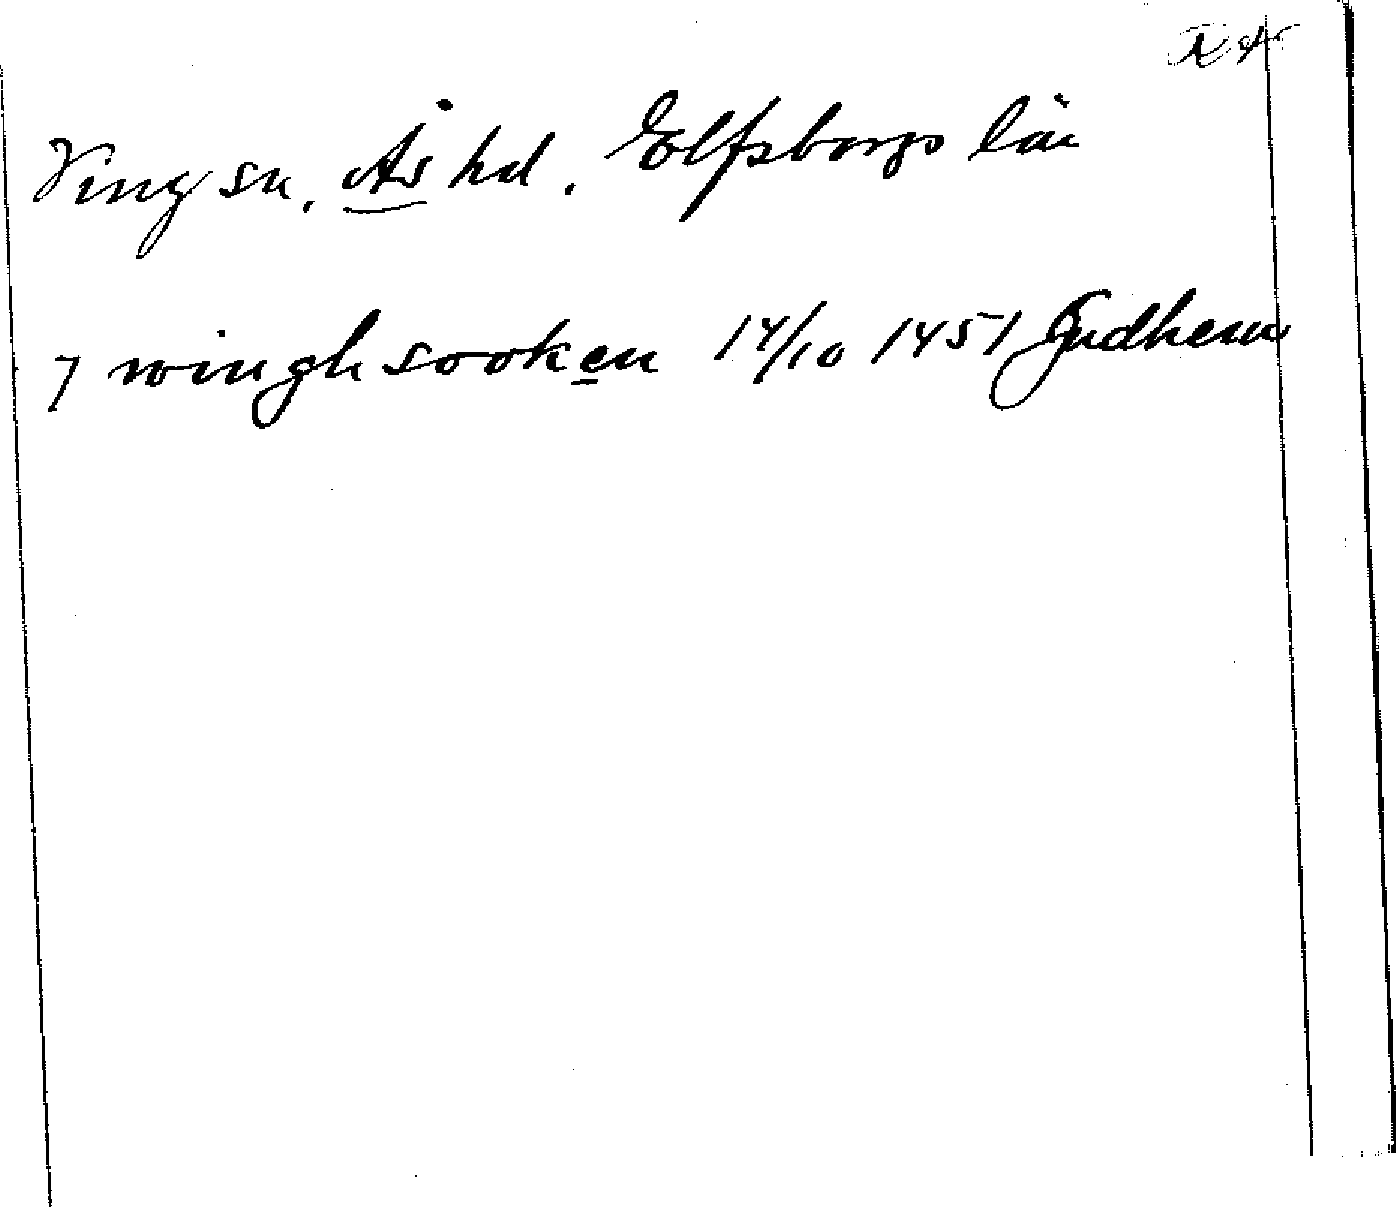 RA
Ving sn. Ås hd. Elfsborgs län
J winghsooken 14/10 1451 Gudhem